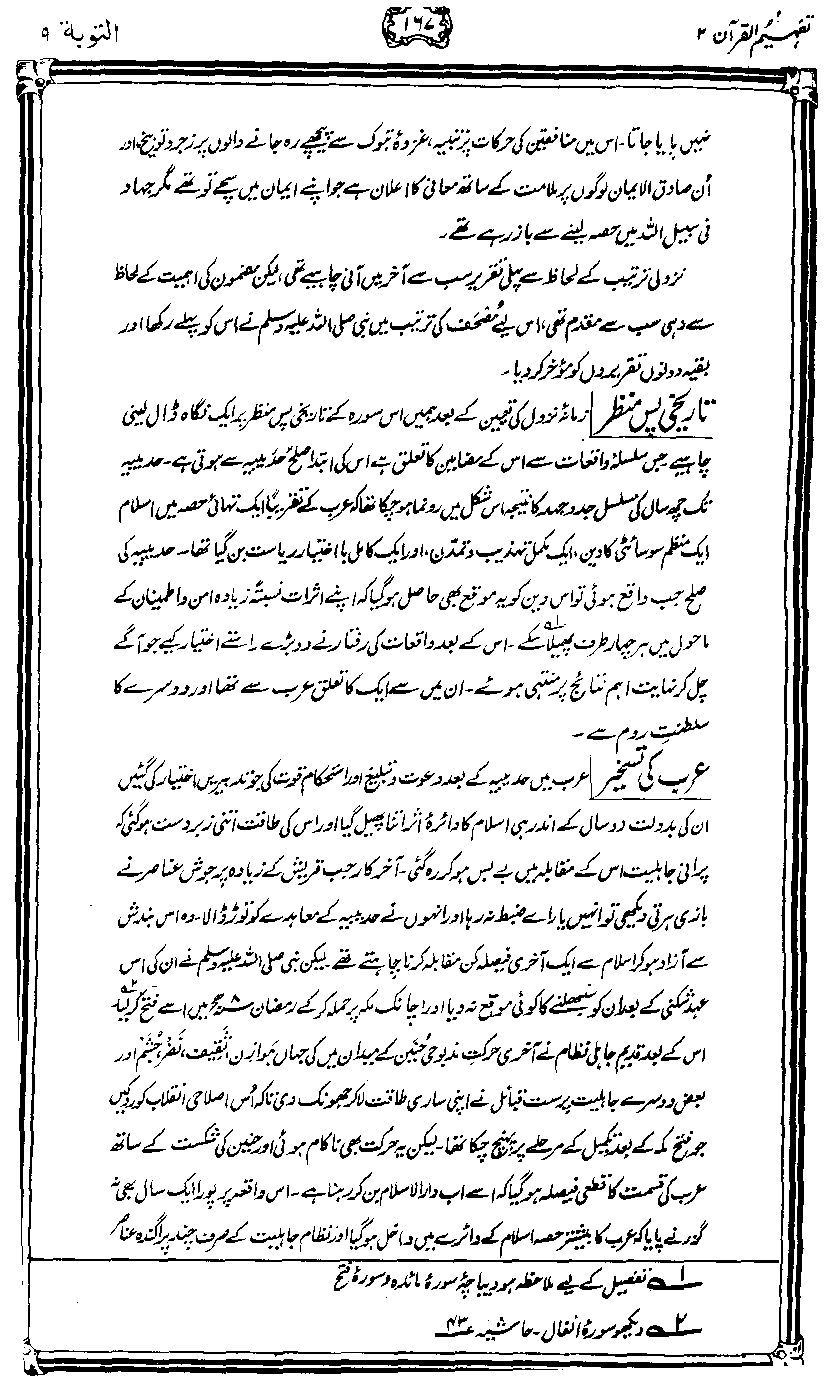 تفہیم القرآن ۲
۱۶۷
التوبة ۹
نہیں پایا جاتا۔ اس میں منافقین کی حرکات پر تنبیہ، غزوۂ تبوک سے پیچھے رہ جانے والوں پر زجر و توبیخ، اور
اُن صادق الایمان لوگوں پر ملامت کے ساتھ معافی کا اعلان ہے جو اپنے ایمان میں سچے تو تھے مگر جہاد
فی سبیل اللہ میں حصہ لینے سے باز رہے تھے۔
نزولی ترتیب کے لحاظ سے پہلی تقریر سب سے آخر میں آنی چاہیے تھی، لیکن مضمون کی اہمیت کے لحاظ
سے وہی سب سے مقدم تھی، اس لیے مُصحَف کی ترتیب میں نبی صلی اللہ علیہ وسلم نے اس کو پہلے رکھا اور
بقیہ دونوں تقریروں کو مؤخر کر دیا۔
تاریخی پس منظر زمانۂ نزول کی تعیین کے بعد ہمیں اس سورہ کے تاریخی پس منظر پر ایک نگاہ ڈال لینی
چاہیے جس سلسلۂ واقعات سے اس کے مضامین کا تعلق ہے اس کی ابتدا صلح حُدَیبیہ سے ہوتی ہے۔ حدیبیہ
تک چھ سال کی مسلسل جدوجہد کا نتیجہ اس شکل میں رونما ہو چکا تھا کہ عرب کے تقریباً ایک تہائی حصہ میں اسلام
ایک منظم سوسائٹی کا دین، ایک مکمل تہذیب و تمدن، اور ایک کامل با اختیار ریاست بن گیا تھا۔ حدیبیہ کی
صلح جب واقع ہوئی تو اس دین کو یہ موقع بھی حاصل ہو گیا کہ اپنے اثرات نسبتہً زیادہ امن و اطمینان کے
ماحول میں ہر چہار طرف پھیلا سکے۱۔ اس کے بعد واقعات کی رفتار نے دو بڑے راستے اختیار کیے جو آگے
چل کر نہایت اہم نتائج پر منتہی ہوئے۔ ان میں سے ایک کا تعلق عرب سے تھا اور دوسرے کا
سلطنتِ روم سے۔
عرب کی تسخیر عرب میں حدیبیہ کے بعد دعوت و تبلیغ اور استحکام قوت کی جو تدبیریں اختیار کی گئیں
ان کی بدولت دو سال کے اندر ہی اسلام کا دائرۂ اثر اتنا پھیل گیا اور اس کی طاقت اتنی زبردست ہو گئی کہ
پرانی جاہلیت اس کے مقابلہ میں بے بس ہو کر رہ گئی۔ آخر کار جب قریش کے زیادہ پرجوش عناصر نے
بازی ہرتی دیکھی تو انہیں یارائے ضبط نہ رہا اور انہوں نے حدیبیہ کے معاہدے کو توڑ ڈالا۔ وہ اس بندش
سے آزاد ہو کر اسلام سے ایک آخری فیصلہ کن مقابلہ کرنا چاہتے تھے۔ لیکن نبی صلی اللہ علیہ وسلم نے ان کی اس
عہد شکنی کے بعد ان کو سنبھلنے کا کوئی موقع نہ دیا اور اچانک مکہ پر حملہ کر کے رمضان ۸ھ میں اسے فتح کر لیا۲
اس کے بعد قدیم جاہلی نظام نے آخری حرکتِ مذبوحی حُنَین کے میدان میں کی جہاں ہوازن، ثَقِیف، نَضر، جُشَم اور
بعض دوسرے جاہلیت پرست قبائل نے اپنی ساری طاقت لا کر جھونک دی تاکہ اُس اصلاحی انقلاب کو روکیں
جو فتح مکہ کے بعد تکمیل کے مرحلے پر پہنچ چکا تھا۔ لیکن یہ حرکت بھی ناکام ہوئی اور حنین کی شکست کے ساتھ
عرب کی قسمت کا قطعی فیصلہ ہو گیا کہ اسے اب دارالاسلام بن کر رہنا ہے۔ اس واقعہ پر پورا ایک سال بھی نہ
گزرنے پایا کہ عرب کا بیشتر حصہ اسلام کے دائرے میں داخل ہو گیا اور نظام جاہلیت کے صرف چند پراگندہ عناصر
۱ تفصیل کے لیے ملاحظہ ہو دیباچۂ سورۂ مائدہ و سورۂ فتح
۲ دیکھو سورۂ انفال۔ حاشیہ ۴۳